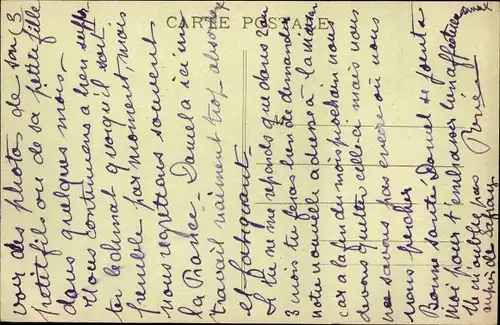 CARTE POSTALE
(3
voir des photos de son
petit fils ou de sa petite fille
dans quelques mois.
Nous continuons à bien suppor-
ter le climat quoiqu'il soit
pénible par moment, mais
nous regrettons souvent
la France. Daniel a ici un
travail vraiment trop absorbant
et fatiguant.
Si tu ne me réponds que dans 2 ou
3 mois tu feras bien de demander
notre nouvelle adresse à la mission
car à la fin du mois prochain nous
devons quitter celle-ci mais nous
ne savons pas encore où nous
nous percher
Bonne santé Daniel se joint à
moi pour t'embrasser bien affectueu-
sement
Renée
Ne m'oublies pas
auprès de